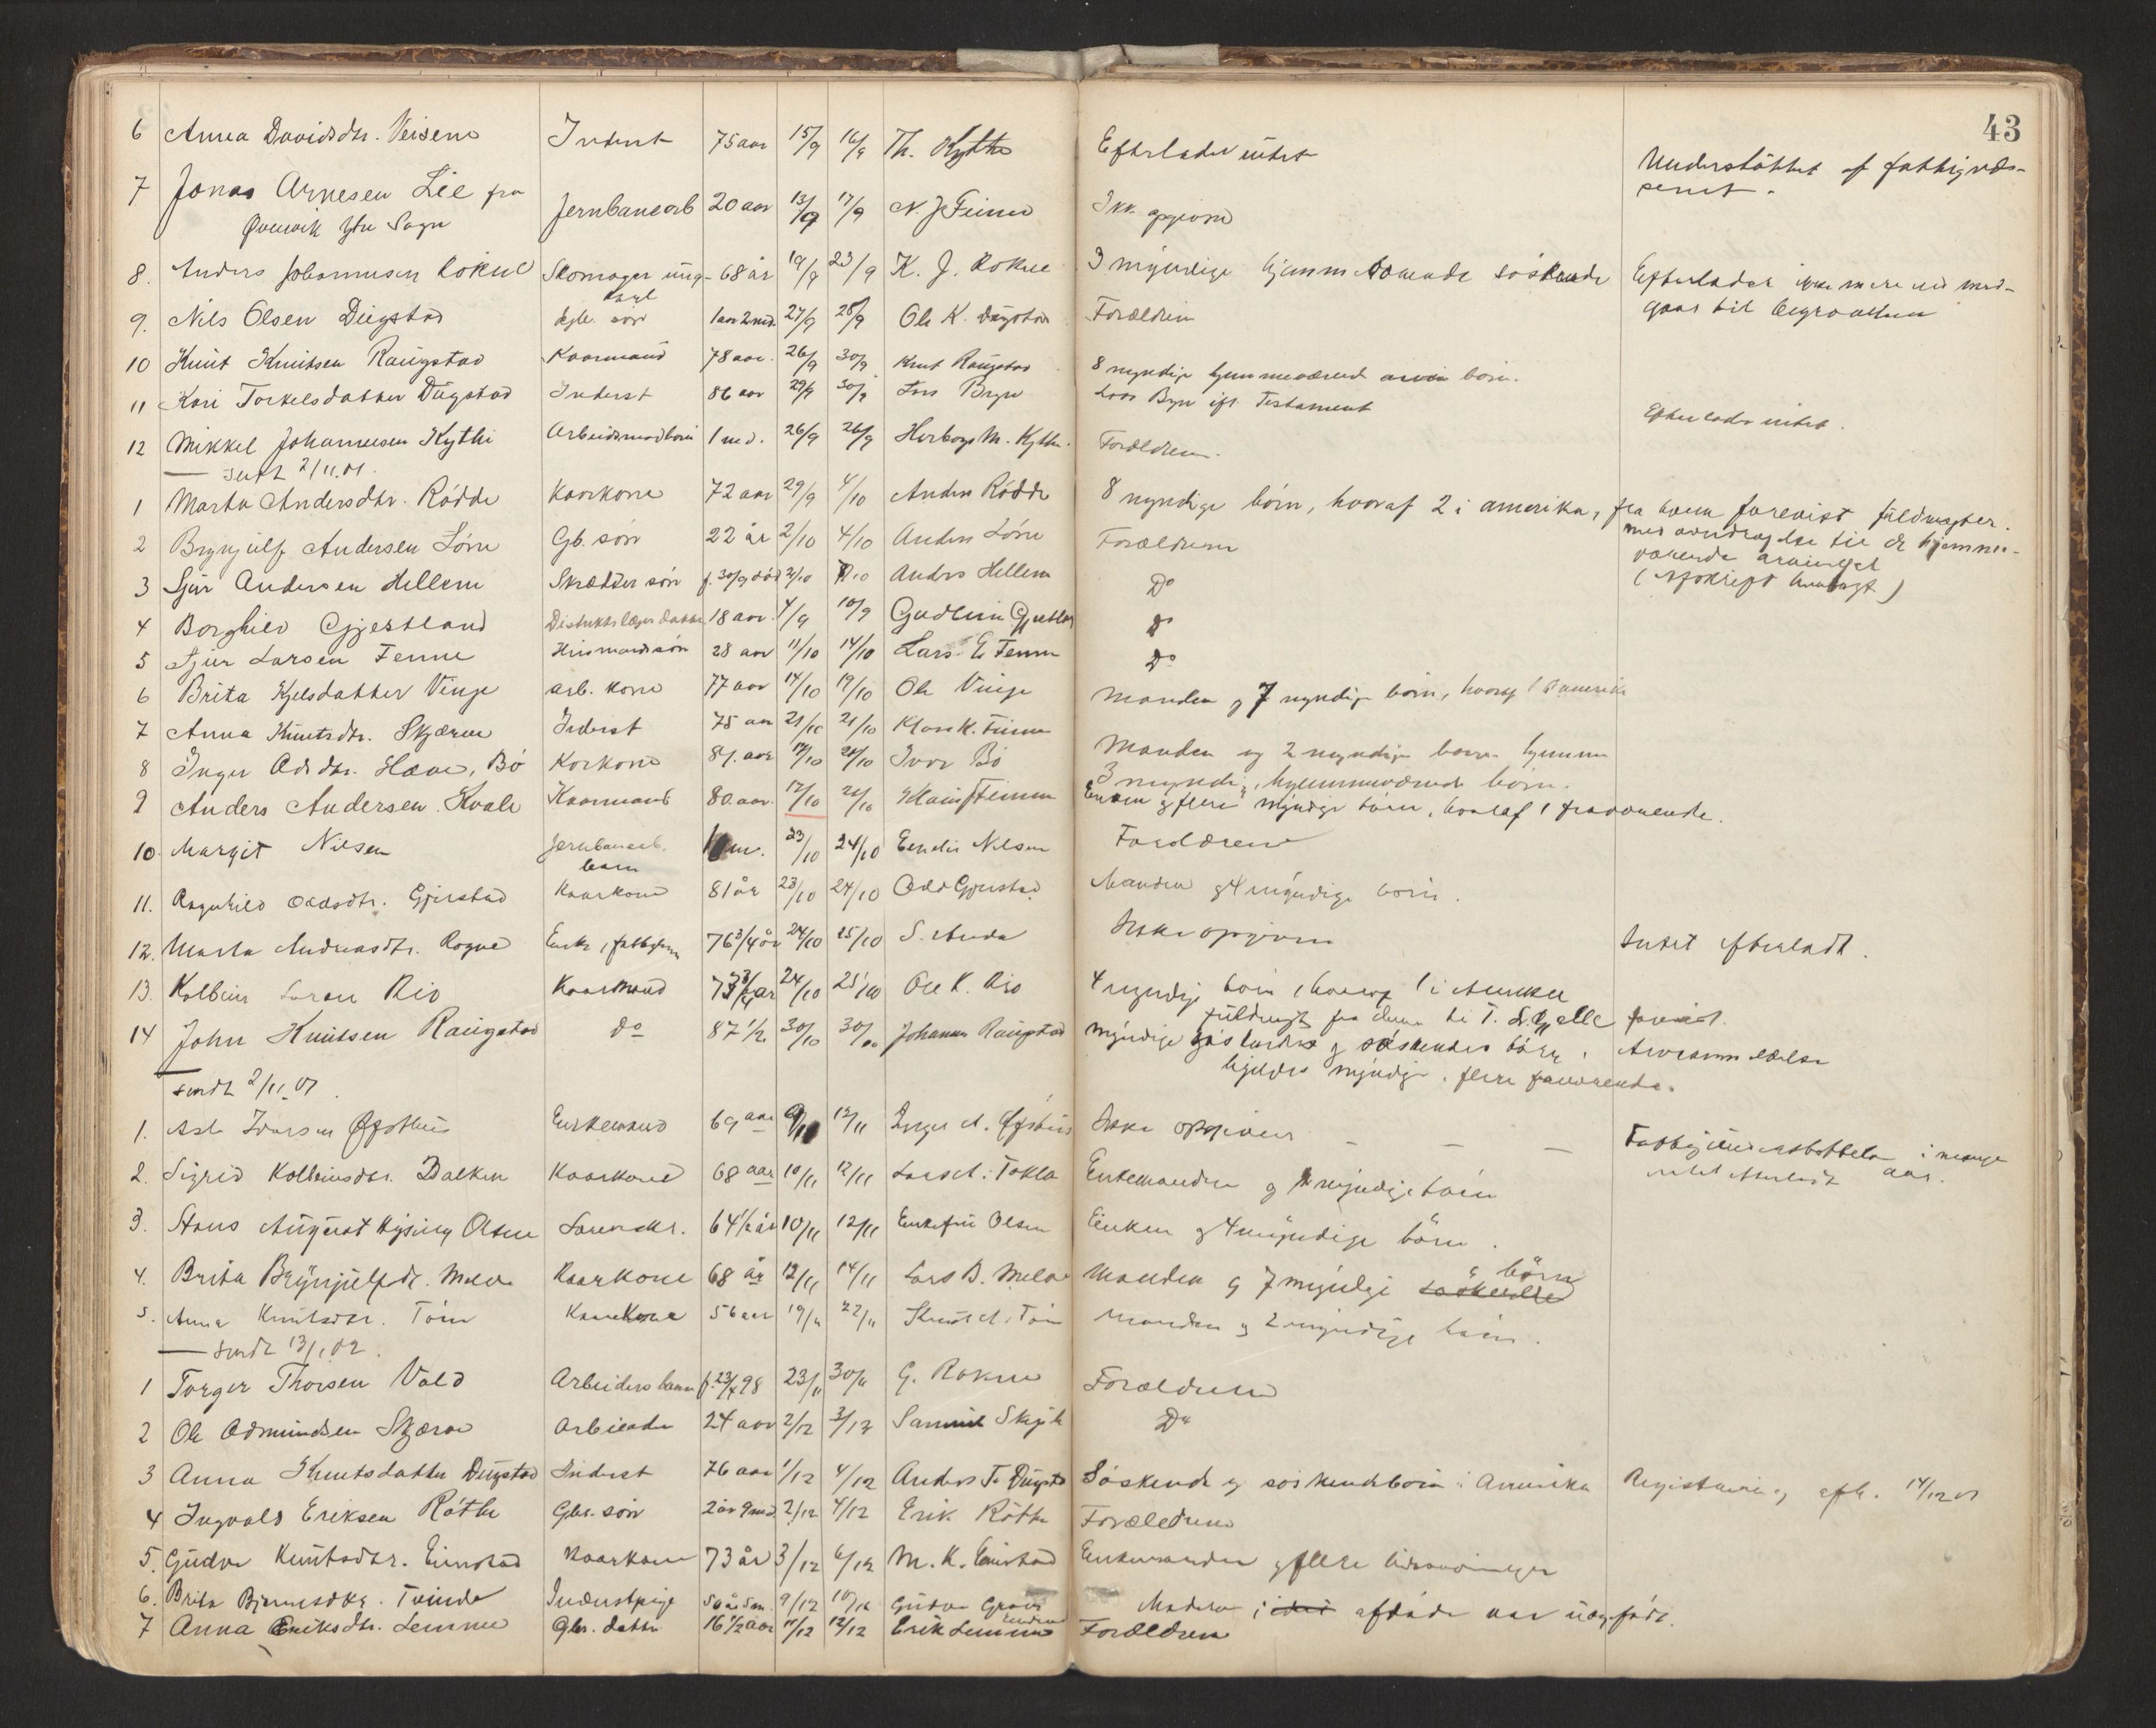 43
6 Anna Davidsdtr. Veisene Inderst 75 aar 15/9 16/9 Th. Kythe Efterlader intet Understøttet af fattigvæs-
senet.
7 Jonas Arnesen Lie fra Jernbanearb 20 aar 13/9 17/9 N. J. Finne Ikke opgivne
Ytre Sogn
8. Anders Johannesen Rokne Skomager ung- 68 år 19/9 23/9 K. J. Rokne 3 myndige hjemmeværende söskende Efterlader ikke mere end med-
karl gaar til begravelsen
9. Nils Olsen Dügstad son 1 aar 2 md. 27/9 28/9 Ole K. Dügstad Forældrene
10 Knut Knutsen Raugstad Kaarmand 78 aar. 26/9 30/9 Knut Raugstad 8 myndige hjemmeværende börn.
11 Kari Torkelsdatter Dügstad Inderst 86 aar 29/9 30/9 Lars Bryn Lars Bryn ifl. Testament Efterlader intet.
12 Mikkel Johannesen Kythe 1 md. 26/9 26/9 M. Kythe. Forældrene.
sendt 2/11.01.
1 Marta Andersdtr. Rödde Kaarkone 72 aar 29/9 4/10 Anders Rödde 8 myndige börn, hvoraf 2 i amerika, fra hvem forevist fuldmagter.
med til de hjemme-
værende arvinger
(Afskrift )
2 Brynjulf Andersen Löne Gb. sön 22 år 2/10 4/10 Anders Löne Forældrene
3 Sjur Andersen Hellem Skrædder sön f. 30/9 död 2/10 Anders Hellem Do
4 Borghild Gjestland Distriktslæges datter 18 aar. 4/9 10/9 Do
5 Sjur Larsen Fenne Husmandssön 28 aar 11/10 14/10 Lars E. Fenne Do
6 Brita Kjelsdatter Vinje arb. kone 77 aar 14/10 19/10 Ole Vinje Manden og 7 myndige börn, hvoraf 1 i amerika
7 Anna Knutsdtr. Skjerve Inderst 75 aar 21/10 21/10 K. Finne Manden og 2 myndige börn hjemme
8 Inger Odsdtr. Hæve, Bö Korkone 84. aar 17/10 24/10 Ivar Bö 3 myndige, hjemmeværende börn.
9 Anders Andersen Kvale Kaarmand 80 aar. 17/10 Enken og flere myndige börn, hvoraf 1 fraværende.
10. Margit Nilsen Jernbanearb. 23/10 24/10 Nilsen Forældrene
barn
11. Ragnhild Oddsdtr. Gjerstad Kaarkone 81 år 23/10 24/10 Odd Gjerstad Manden og 4 myndige börn.
12. Marta Andreasdtr. Rogne Enke, 76 3/4 år 24/10 25/10 S. Ikke opgiven Intet efterladt.
13. Kolbein Larsen Rio Kaarmand 24/10 25/10 Ole K. Rio 4 myndige börn, hvoraf 1 i Amerika
fra denne til T. L. Gjelle forevist.
14 John Knutsen Raugstad do 87 1/2 30/10 Johannes Raugstad myndige söskende og söskendes börn, Arveanmeldelse
ligeledes myndige, flere fraværende.
sendt 2/11.01.
1. Asle Ivarsen Öfsthus Enkemand 69 aar 12/11 Inger A. Öfsthus Ikke opgiven — — — Fattigunderstöttelse i mange
intet efterladt aar.
2. Sigrid Kolbeinsdtr. Dalken Kaarkone 68 aar 10/11 12/11 Lars A. Tokla Enkemanden og myndige börn
3. Hans August Hysing Olsen 64 1/2 år 10/11 12/11 Enkefru Olsen Enken og 4 myndige börn.
4. Brita Brynjulfsdtr. Melve Kaarkone 68 år 12/11 14/11 Lars B. Melve Manden og 7 myndige söskende börn
5. Anna Knutsdtr. Tön Kaarkone 56 aar 19/11 22/11 Knut A. Tön Manden og 2 myndige börn.
sendt 13/1.02.
1 Torger Thorsen Vold Arbeiders barn f. 23/4 98 23/11 30/11 G. Rokne Forældrene
2 Ole Odmundsen Skjerve Arbeider 24 aar 2/12 3/12 Samuel Do
3 Anna Knutsdatter Dügstad Inderst 76 aar 1/12 4/12 Anders T. Dügstad Söskende og söskendebörn i Amerika Registrering afh. 14/12 01
4 Ingvald Eriksen Röthe Gbr. sön 2 år 9 md. 2/12 4/12 Erik Röthe Forældrene
5. Gudve Knutsdtr. Eimstad Kaarkone 73 år 3/12 6/12 M. K. Eimstad Enkemanden og flere
6. Brita Tvinde Inderstpige 9/12 Gudve Moderen; afdöde var uægte född.
7 Anna Eriksdtr. Lemme Gbr. datter 16 1/2 aar 11/12 12/12 Erik Lemme Forældrene